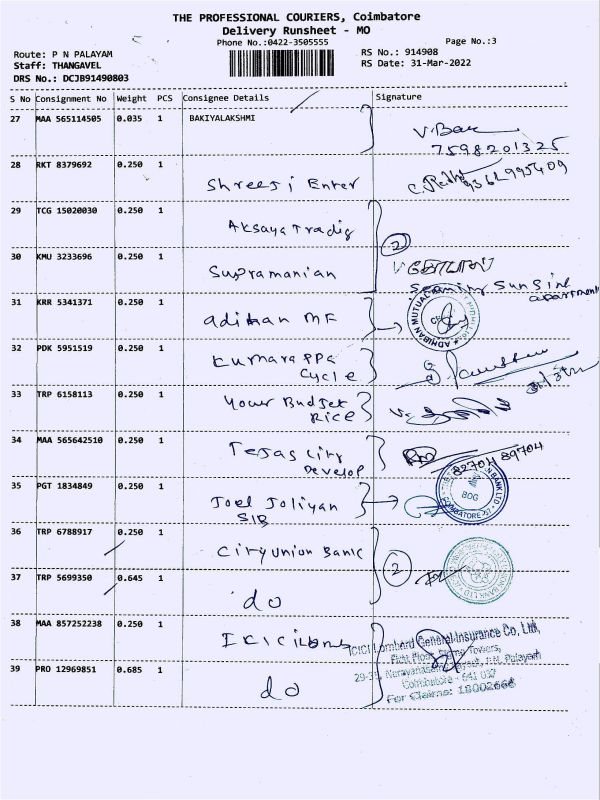 THE PROFESSIONAL COURIERS, Coimbatore
Delivery Runsheet - MO
Phone No.:0422-3505555
Page No.:3
Route: P N PALAYAM
RS No.: 914908
Staff: THANGAVEL
RS Date: 31-Mar-2022
DRS No.: DCJB91490803
S No Consignment No Weight PCS Consignee Details Signature
27 MAA 565114505 0.035 1 BAKIYALAKSHMI
V. Bak
7598201325
28 RKT 8379692 0.250 1
Shreeji Enter
29 TCG 15020030 0.250 1
Aksaya Tradig
2
30 KMU 3233696 0.250 1
Supramanian
31 KRR 5341371 0.250 1
adihan MF
ADHIRAN MUTUAL
32 PDK 5951519 0.250 1
Kumarappa
Cycle
33 TRP 6158113 0.250 1
Your Budjet
Rice
34 MAA 565642510 0.250 1
Tejas City
Develop
82704 89704
35 PGT 1834849 0.250 1
Joel Joliyan
SIB
BANK LTD
BOG
36 TRP 6788917 0.250 1
City Union Bank
2
37 TRP 5699350 0.645 1
do
38 MAA 857252238 0.250 1
ICICI Lombard General Insurance Co. Ltd.
Towers,
39 PRO 12969851 0.685 1
do
Coimbatore - 641 037
For Claims: 18002666